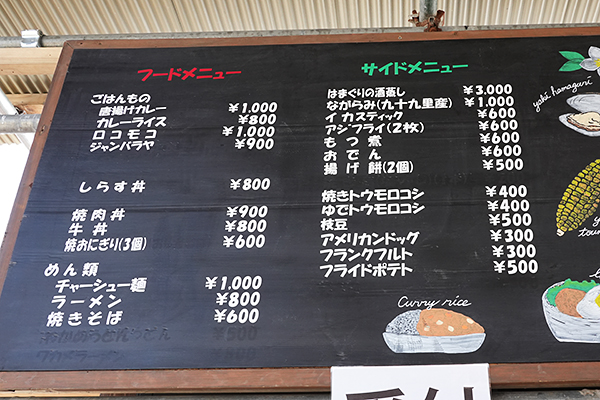 フードメニュー
ごはんもの
唐揚げカレー ¥1,000
カレーライス ¥800
ロコモコ ¥1,000
ジャンバラヤ ¥900
しらす丼 ¥800
焼肉丼 ¥900
牛丼 ¥800
焼おにぎり(3個) ¥600
めん類
チャーシュー麺 ¥1,000
ラーメン ¥800
焼きそば ¥600
500
サイドメニュー
はまぐりの酒蒸し ¥3,000
ながらみ(九十九里産) ¥1,000
イカスティック ¥600
アジフライ(2枚) ¥600
もつ煮 ¥600
おでん ¥600
揚げ餅(2個) ¥500
焼きトウモロコシ ¥400
ゆでトウモロコシ ¥400
枝豆 ¥500
アメリカンドッグ ¥300
フランクフルト ¥300
フライドポテト ¥500
yaki hamaguri
Curry rice